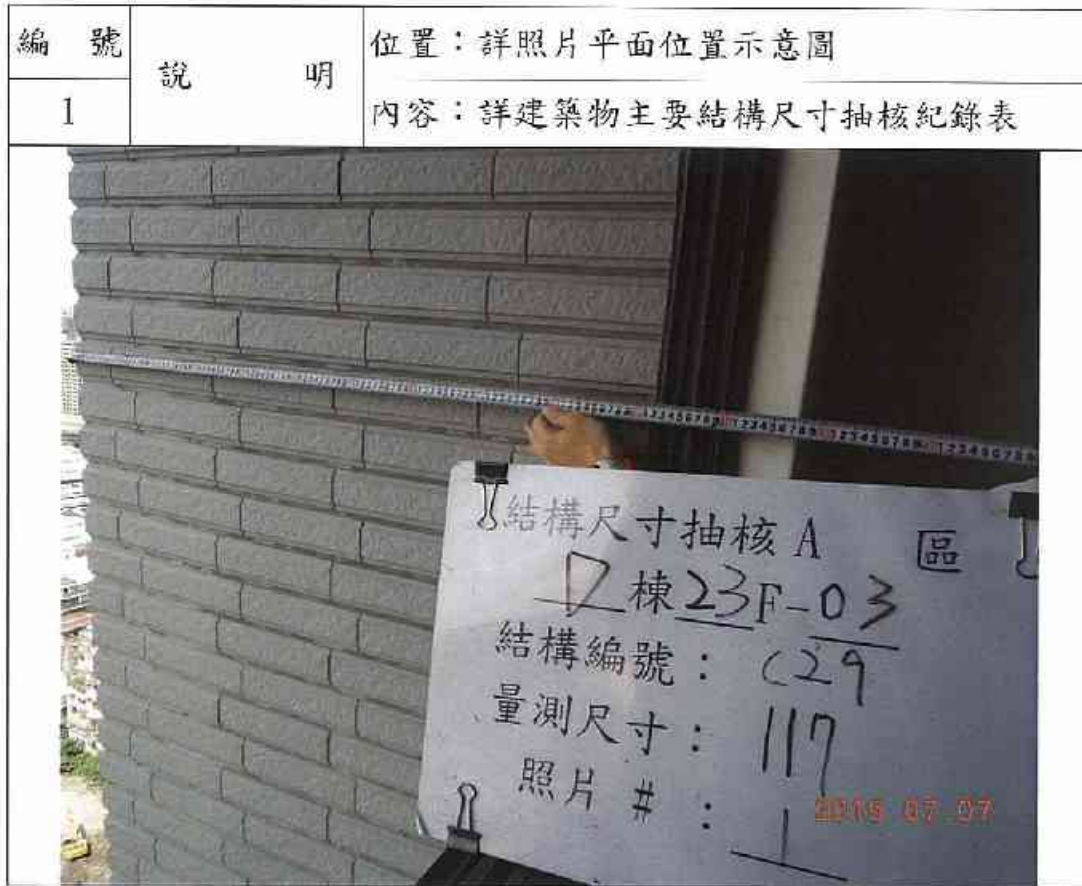 編號
1
說明
位置：詳照片平面位置示意圖
內容：詳建築物主要結構尺寸抽核紀錄表
結構尺寸抽核 A 區
D 棟 23F-03
結構編號： C29
量測尺寸： 117
照片 #： 1
2015 07 07